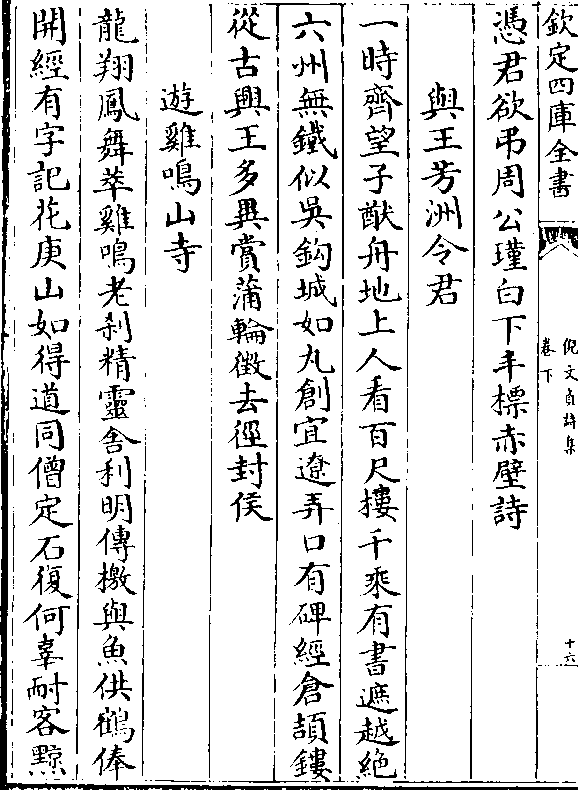 欽定四庫全書
倪文貞詩集
卷下
十六
憑君欲弔周公瑾白下丰標赤壁詩
與王芳洲令君
一時齊望子猷舟地上人看百尺樓千乘有書遮越絶
六州無鐵似吳鈎城如丸創宜遼弄口有碑經倉頡鏤
從古興王多異賞蒲輪徵去徑封侯
遊雞鳴山寺
龍翔鳳舞萃雞鳴老刹精靈舎利明傳檄與魚供鶴俸
開經有字記花庚山如得道同僧定石復何辜耐客黥